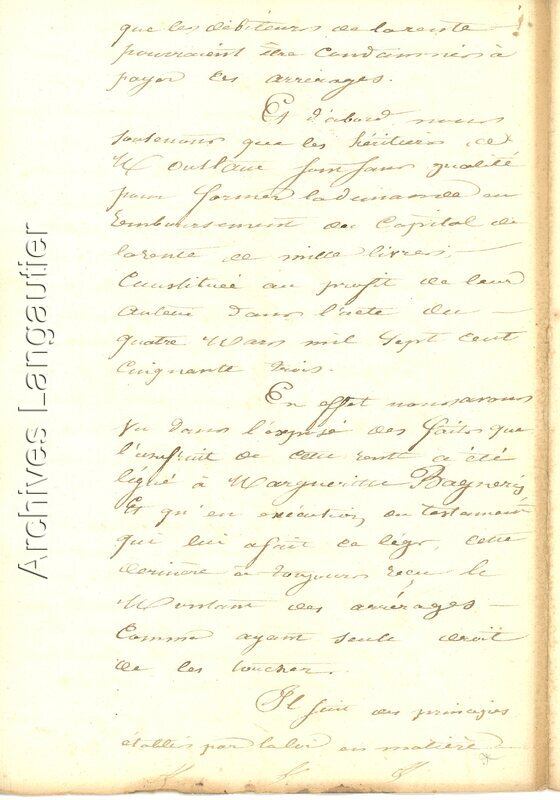 que les débiteurs de la rente
pourraient être condamnés à
payer les arrérages.
Et d'abord nous
soutenons que les héritiers de
sont sans qualité
pour former la demande en
remboursement du Capital de
la rente de mille livres,
Constituée au profit de leur
auteur dans l'acte du
quatre Mars mil Sept Cent
Cinquante trois.
En effet nous avons
vu dans l'exposé des faits que
l'usufruit de cette rente a été
légué à Marguerite Bagneris
Et qu'en exécution du testament
qui lui a fait ce légs, cette
dernière a toujours reçu le
Montant des arrérages
Comme ayant seule droit
de les toucher.
Il suit des principes
établis par la loi en matière
Archives Langautier